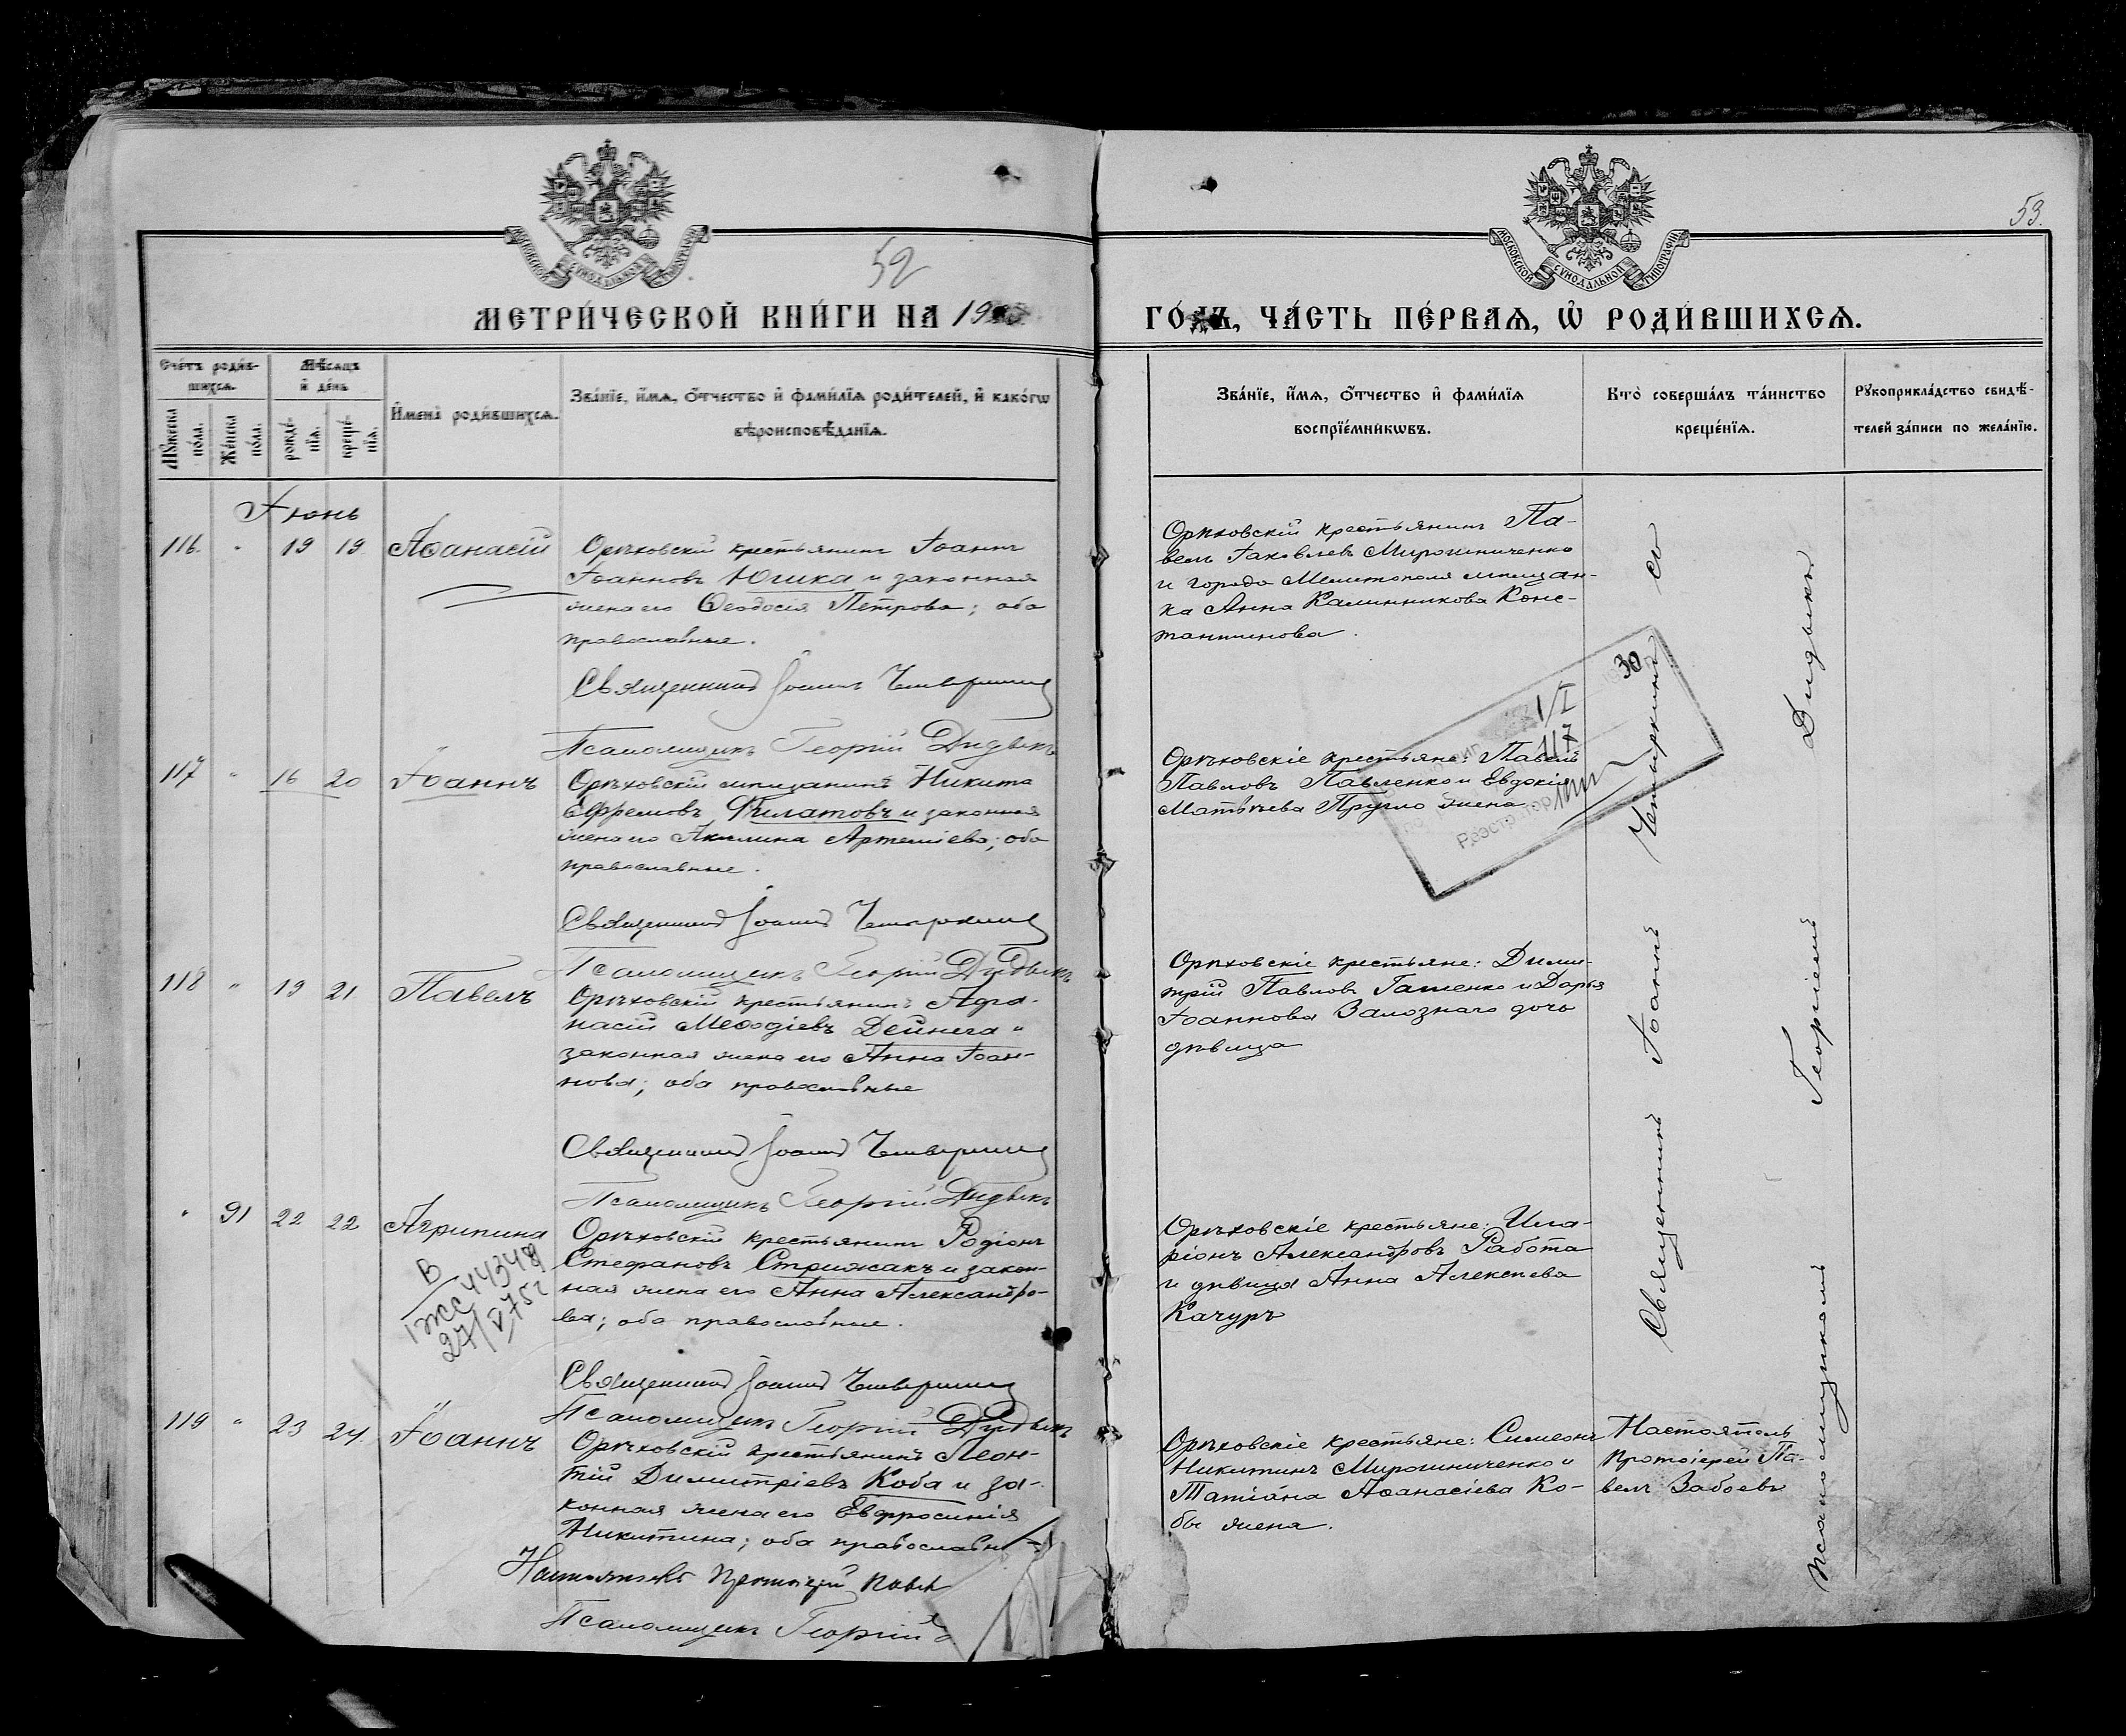 52
53.
МОСКОВСКОЙ СѴНОДАЛЬНОЙ ТИПОГРАФІИ
МОСКОВСКОЙ СѴНОДАЛЬНОЙ ТИПОГРАФІИ
МЕТРИ́ЧЕСКОЙ КНИ́ГИ НА 19
ГО́ДЪ, ЧА́СТЬ ПЕ́РВАѦ, Ѽ РОДИ́ВШИХСѦ.
Сче́тъ роди́в-
шихсѧ.
Мꙋ́жеска по́ла.
Же́нска по́ла.
Мѣ́сѧцъ
и҆ де́нь
рожде́-
нїѧ.
креще́-
нїѧ.
И҆мена̀ роди́вшихсѧ.
Зва́нїе, и҆́мѧ, ѻ҆́тчество и҆ фами́лїѧ роди́телей, и҆ како́гѡ
вѣроисповѣ́данїѧ.
Зва́нїе, и҆́мѧ, ѻ҆́тчество и҆ фами́лїѧ
воспрїе́мникѡвъ.
Кто̀ соверша́лъ та́инство
креще́нїѧ.
Рꙋкоприкла́дство свидѣ́-
телей за́писи по жела́нїю.
Іюнь
116. " 19 19. Аѳанасій
Орѣховскій крестьянинъ Іоаннъ
Іоанновъ Юшка и законная
жена его Ѳеодосія Петрова; оба
православные.
Священникъ Іоаннъ Четыркинъ
Псаломщикъ Георгій Дидыкъ
Орѣховскій крестьянинъ Па-
велъ Іаковлевъ Мирошниченко
и города Мелитополя мѣщан-
ка Анна Калинникова Конс-
тантинова.
117 " 16 20 Іоаннъ
Орѣховскій мѣщанинъ Никита
Ефремовъ Филатовъ и законная
жена его Акилина Артеміева; оба
православные.
Священникъ Іоаннъ Четыркинъ
Псаломщикъ Георгій Дидыкъ
Орѣховскіе крестьяне: Павелъ
Павловъ Павленко и Евдокія
Матѳѣева Пругло жена
1/I 30
117
Реэстратор
118 " 19 21. Павелъ
Орѣховскій крестьянинъ Афа-
насій Меѳодіевъ Дейнега и
законная жена его Анна Іоан-
нова; оба православные
Священникъ Іоаннъ Четыркинъ
Псаломщикъ Георгій Дидыкъ
Орѣховскіе крестьяне: Дими-
трій Павловъ Гащенко и Дарья
Іоаннова Залознаго дочь
дѣвица
" 91 22 22 Агрипина
Орѣховскій крестьянинъ Родіонъ
Стефановъ Стрижакъ и закон-
ная жена его Анна Александро-
ва; оба православные.
Священникъ Іоаннъ Четыркинъ
Псаломщикъ Георгій Дидыкъ
27/V 75г
Орѣховскіе крестьяне: Ила-
ріонъ Александровъ Работа
и дѣвица Анна Алексѣева
Качуръ
119 " 23 24. Іоаннъ
Орѣховскій крестьянинъ Леон-
тій Димитріевъ Коба и за-
конная жена его Евфросинія
Никитина; оба православн
Настоятель Протоіерей Павел
Псаломщикъ Георгій
Орѣховскіе крестьяне: Симеонъ
Никитинъ Мирошниченко и
Татіана Аѳанасіева Ко-
бы жена.
Настоятель
Протоіерей Па-
велъ Забоевъ
Священникъ Іоаннъ Четыркинъ съ
Псаломщикомъ Георгіемъ Дидыкъ